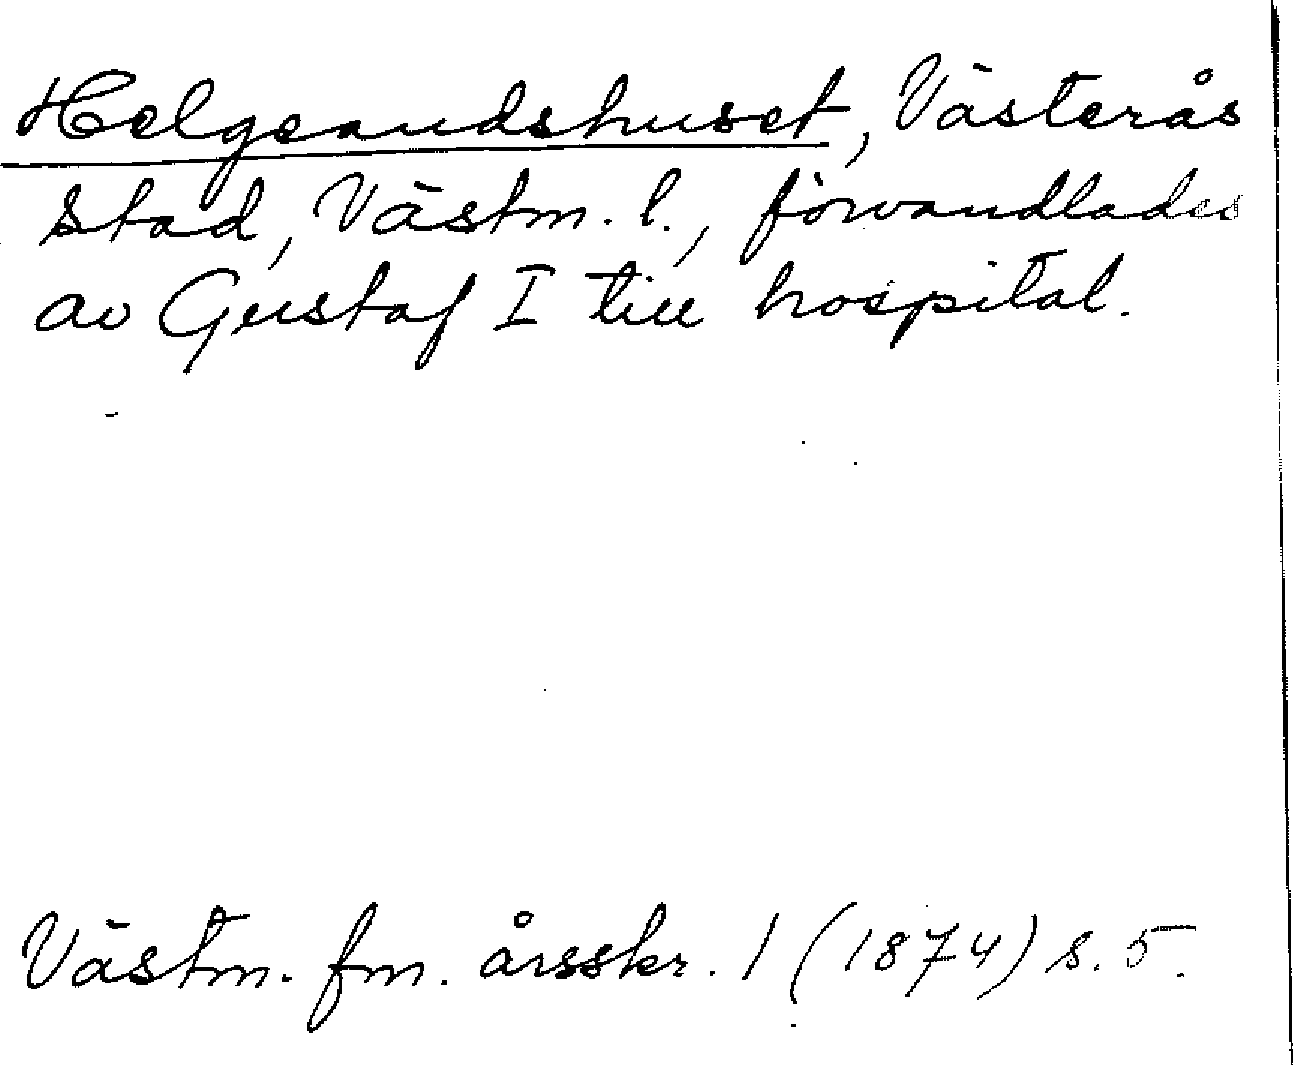 Helgeandshuset, Västerås
stad, Västm. l., förvandlades
av Gustaf I till hospital.
Västm. fm. årsskr. 1 (1874) s. 5.